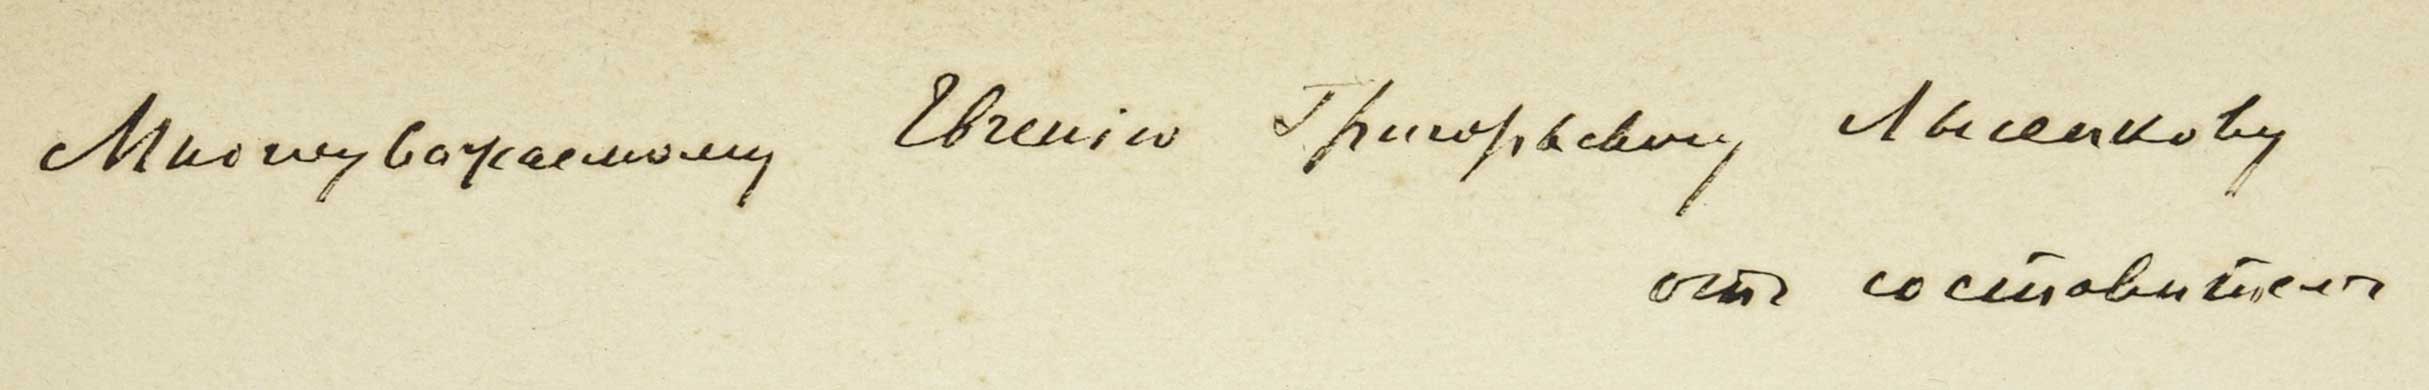 Многоуважаемому Евгенію Григорьевичу Лисенкову
отъ составителя